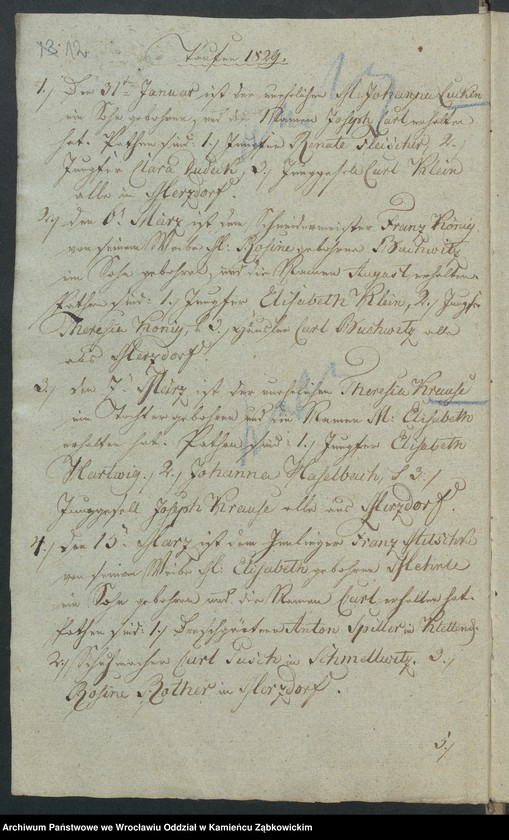 13. 12
Taufen 1829.
1.) Den 31ten Januar ist der unehelichen M. Johanna
ein Sohn gebohren, und die Namen Joseph Carl erhalten
hat. Pathen sind: 1.) Jungfer Renate Fleischer, 2.
Jungfer Clara 3.) Junggesell Carl Klein
alle in Merzdorf.
2.) Den 6t März ist dem Schneidermeister Franz König
von seinem Weibe M: Rosine gebohrne Buchwitz
ein Sohn gebohren, und die Namen August erhalten
Pathen sind: 1.) Jungfer Elisabeth Klein, 2.) Jungfer
Theresia König, 3. Häusler Carl Buchwitz alle
aus Merzdorf
3.) den 7t März ist der unehelichen Theresia Krause
ein Tochter gebohren und die Namen M: Elisabeth
erhalten hat. Pathen sind: 1.) Jungfer Elisabeth
Hartwig, 2.) Johanna Haselbach, 3.)
Junggesell Joseph Krause alle aus Merzdorf.
4.) den 15t März ist dem Inlieger Franz
von seinem Weibe M: Elisabeth gebohrne
ein Sohn gebohren und die Namen Carl erhalten hat.
Pathen sind: 1.) Dreschgärtner Anton Spiller in
2.) Schuhmacher Carl in Schmellwitz. 3.)
Rosine Rother in Merzdorf.
5.)
Archiwum Państwowe we Wrocławiu Oddział w Kamieńcu Ząbkowickim